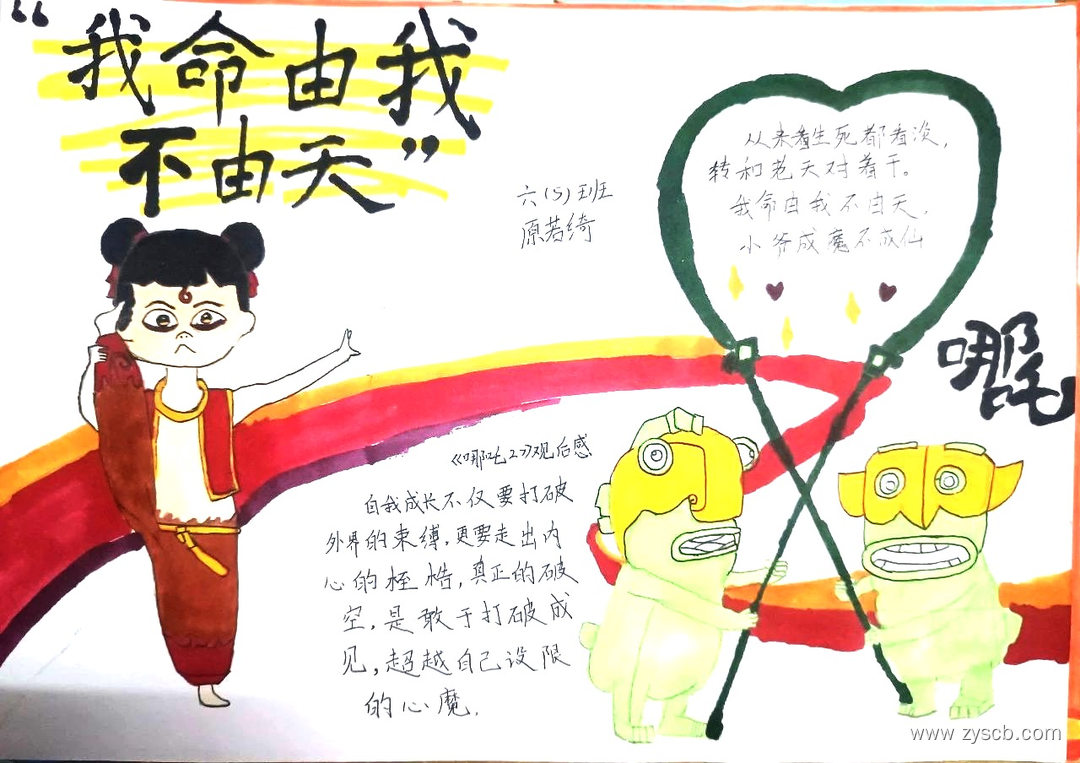 “我命由我
不由天”
六(5)班
原若绮
从来看生死都看淡,
转和老天对着干。
我命由我不由天,
小爷成魔不成仙
哪吒
《哪吒2》观后感
自我成长不仅要打破
外界的束缚,更要走出内
心的桎梏,真正的破
空,是敢于打破成
见,超越自己设限
的心魔.
www.zyscb.com